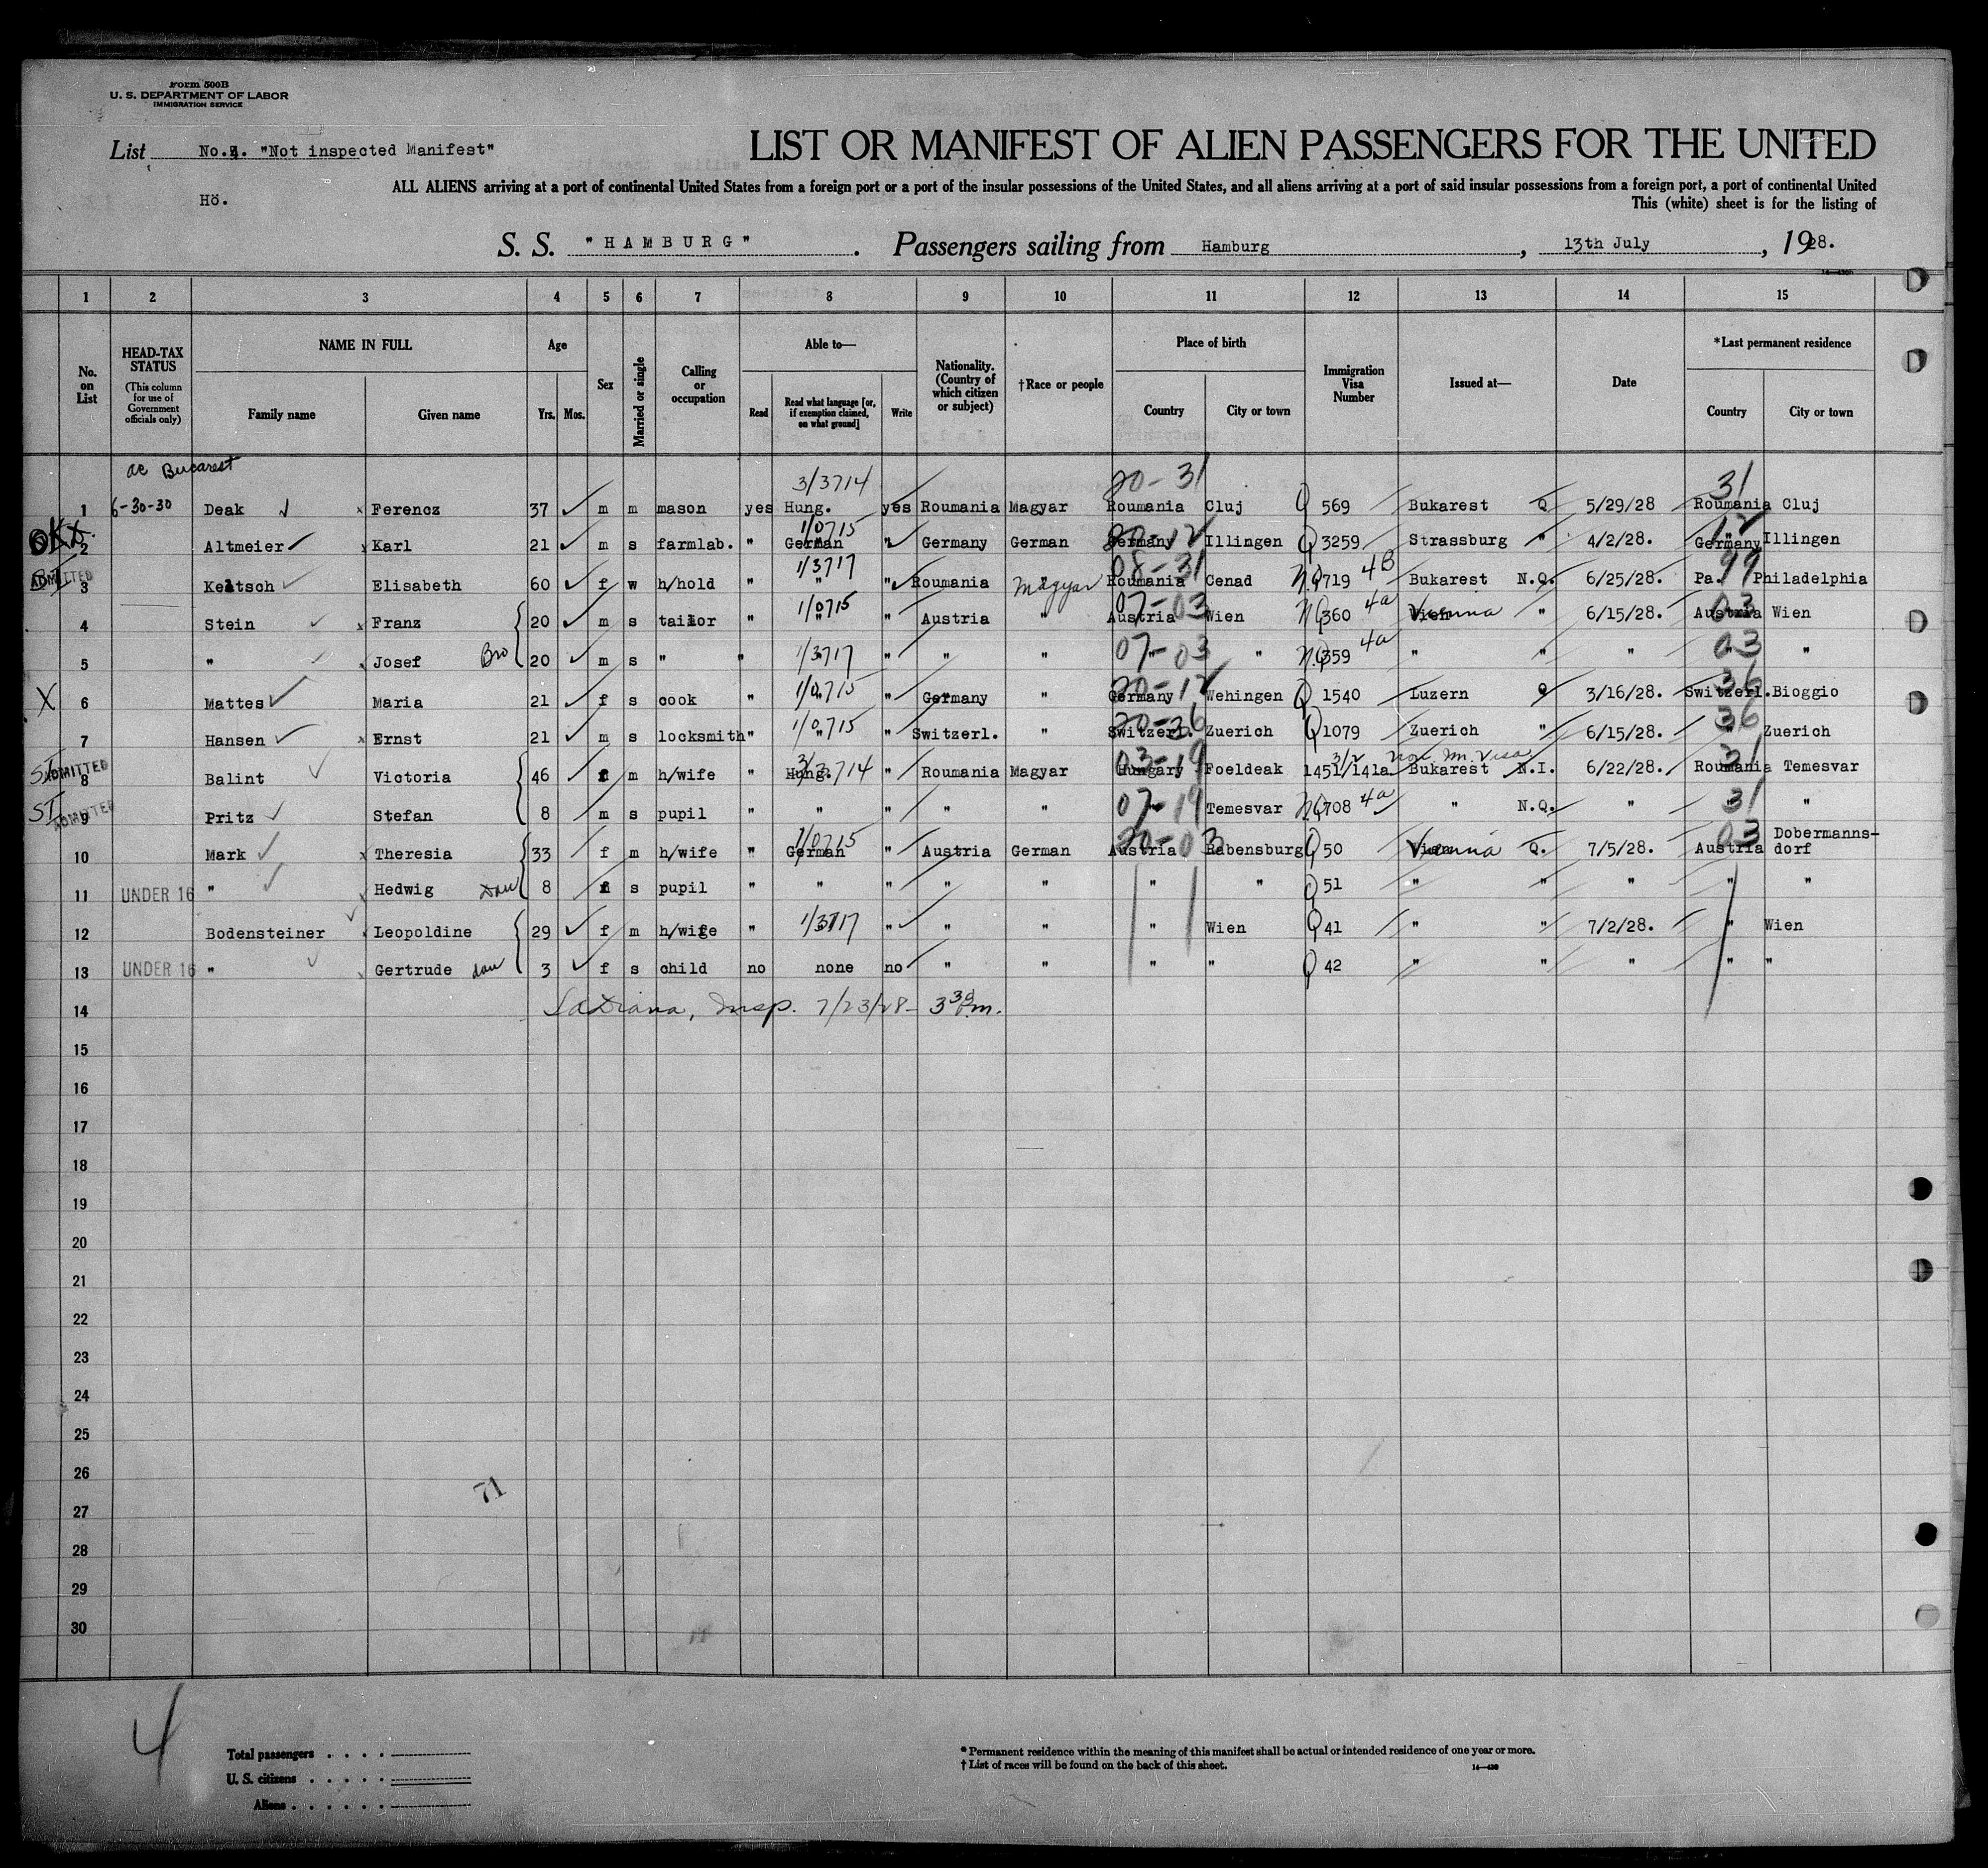 Form 500B
U. S. DEPARTMENT OF LABOR
IMMIGRATION SERVICE
List No. "Not inspected Manifest"
LIST OR MANIFEST OF ALIEN PASSENGERS FOR THE UNITED
ALL ALIENS arriving at a port of continental United States from a foreign port or a port of the insular possessions of the United States, and all aliens arriving at a port of said insular possessions from a foreign port, a port of continental United
Hö.
This (white) sheet is for the listing of
S. S. "HAMBURG". Passengers sailing from Hamburg, 13th July, 1928.
1 2 3 4 5 6 7 8 9 10 11 12 13 14 15
No. on List
HEAD-TAX STATUS
(This column for use of Government officials only)
NAME IN FULL
Family name Given name
Age
Yrs. Mos.
Sex
Married or single
Calling or occupation
Able to—
Read
Read what language [or, if exemption claimed, on what ground]
Write
Nationality. (Country of which citizen or subject)
†Race or people
Place of birth
Country City or town
Immigration Visa Number
Issued at—
Date
*Last permanent residence
Country City or town
Bucarest
3/3714 20-31 31
1 6-30-30 Deak Ferencz 37 m m mason yes Hung. yes Roumania Magyar Roumania Cluj Q 569 Bukarest Q 5/29/28 Roumania Cluj
1/0715 20-12 12
2 Altmeier Karl 21 m s farmlab. " German " Germany German Germany Illingen Q 3259 Strassburg " 4/2/28. Germany Illingen
1/3717 08-31 4B 99
ADMITTED 3 Keltsch Elisabeth 60 f w h/hold " " " Roumania Magyar Roumania Cenad N.Q. 719 Bukarest N.Q. 6/25/28. Pa. Philadelphia
1/0715 07-03 4a 03
4 Stein Franz 20 m s tailor " " " Austria " Austria Wien NQ 360 Vienna " 6/15/28. Austria Wien
1/3717 07-03 4a 03
5 " Josef Bro 20 m s " " " " " " " " N.Q 359 " " " " "
1/0715 20-12 36
X 6 Mattes Maria 21 f s cook " " " Germany " Germany Wehingen Q 1540 Luzern Q 3/16/28. Switzerl. Bioggio
1/0715 20-36 36
7 Hansen Ernst 21 m s locksmith " " " Switzerl. " Switzerl. Zuerich Q 1079 Zuerich " 6/15/28. " Zuerich
3/3714 03-19 31
SI ADMITTED 8 Balint Victoria 46 f m h/wife " Hung. " Roumania Magyar Hungary Foeldeak 1451/141a Bukarest N.I. 6/22/28. Roumania Temesvar
07-19 4a 31
SI ADMITTED 9 Pritz Stefan 8 m s pupil " " " " " " Temesvar NQ 708 " N.Q. " " "
1/0715 20-03 03
10 Mark Theresia 33 f m h/wife " German " Austria German Austria Rabensburg Q 50 Vienna Q. 7/5/28. Austria Dobermanns-
dorf
11 UNDER 16 " Hedwig dau 8 f s pupil " " " " " " " Q 51 " " " " "
12 Bodensteiner Leopoldine 29 f m h/wife " 1/3717 " " " " Wien Q 41 " " 7/2/28. " Wien
13 UNDER 16 " Gertrude dau 3 f s child no none no " " " " Q 42 " " " " "
14 Insp. 7/23/28 - 3 30 Pm.
15
16
17
18
19
20
21
22
23
24
25
26
71
27
28
29
30
4
Total passengers
U. S. citizens
Aliens
* Permanent residence within the meaning of this manifest shall be actual or intended residence of one year or more.
† List of races will be found on the back of this sheet.